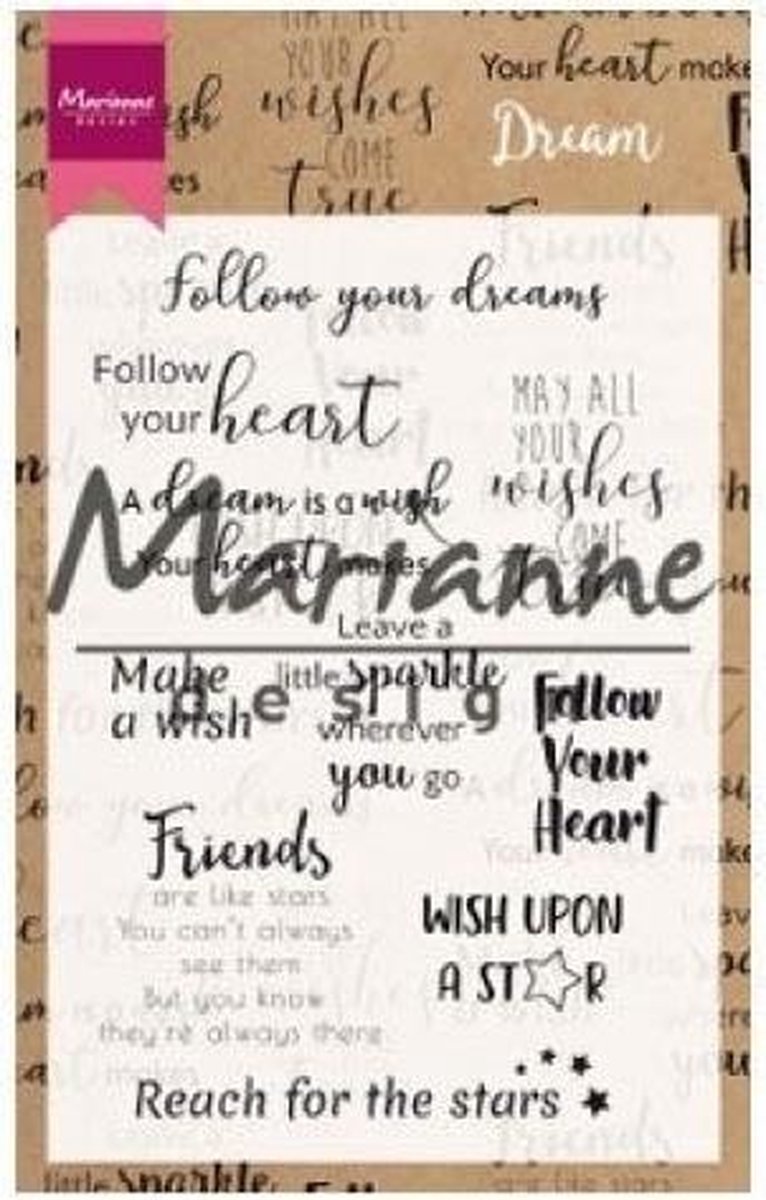 MAY ALL
YOUR
wishes
COME
true
Your heart make
Dream
Marianne
DESIGN
sh
es
Friends
Follow your dreams
Follow
your heart
MAY ALL
YOUR
wishes
COME
true
A dream is a wish
Your heart makes
Marianne
desig
Leave a
little sparkle
wherever
you go
Make
a wish
Follow
Your
Heart
Friends
are like stars
You can't always
see them
But you know
they're always there
WISH UPON
A ST☆R
Reach for the stars
little sparkle